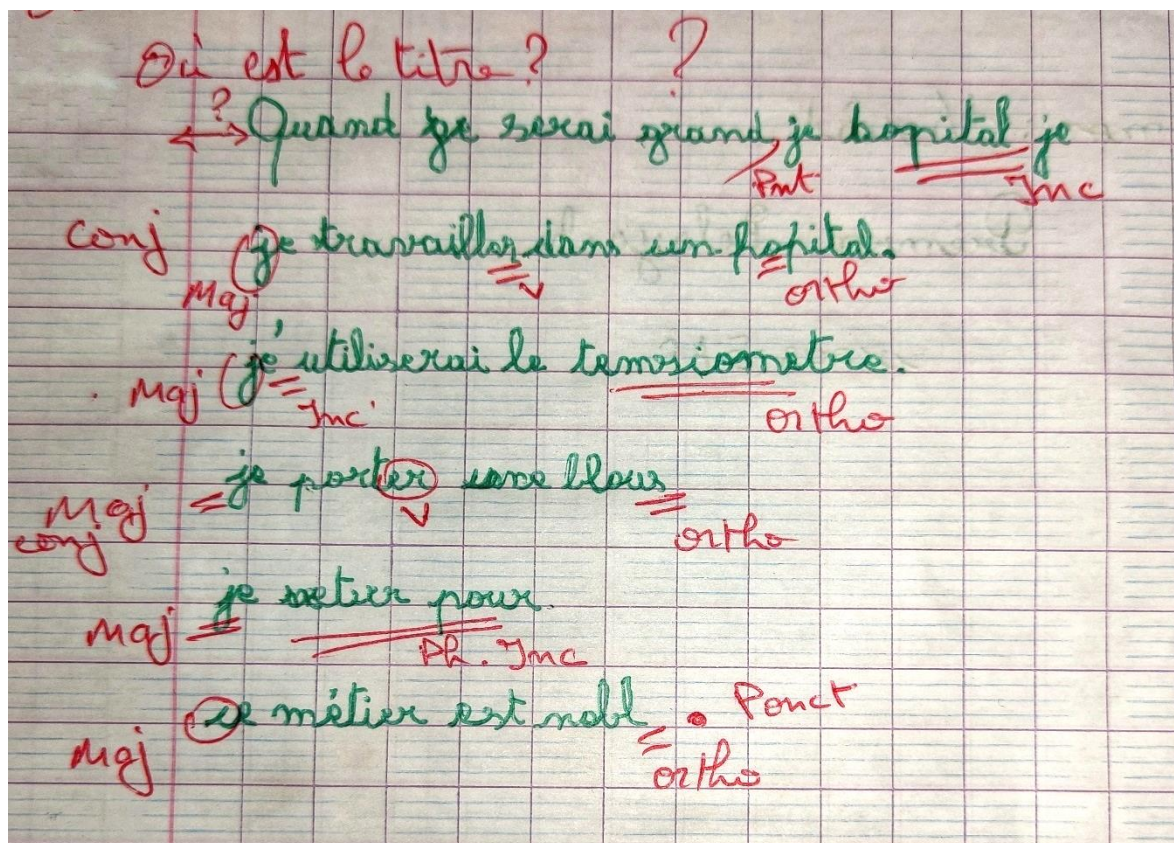 Où est le titre ? ?
? Quand je serai grand je hopital je
Pnt Inc
Conj je travailler dans un hopital.
Maj V ortho
Maj je' utiliserai le tensiometre.
Inc ortho
Maj je porter une blous
conj V ortho
je metier pour.
Maj Ph. Inc
ce métier est nobl . Ponct
Maj ortho